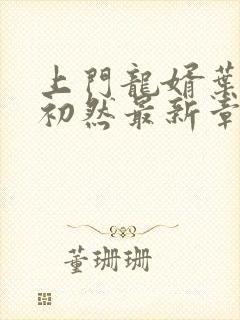 上門龍婿葉
初然最新章
董珊珊